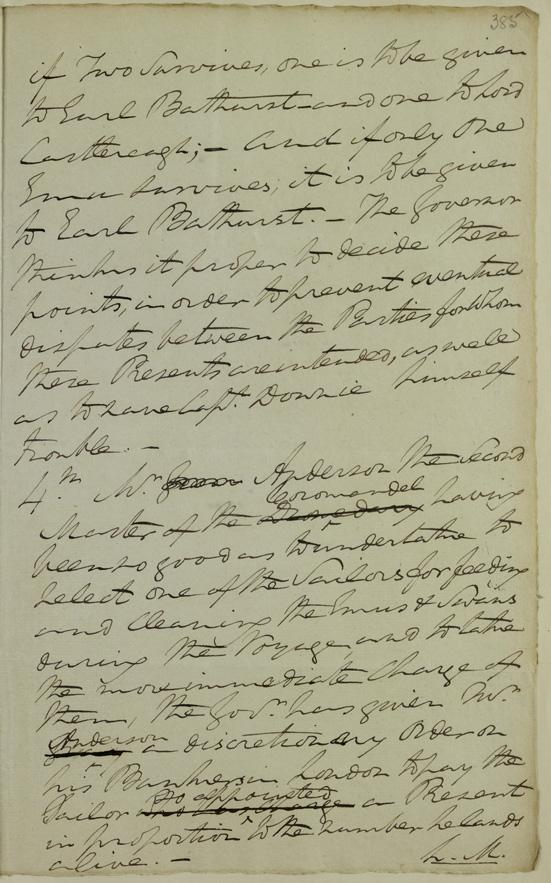 385
if Two Survives, one is to be given
to Earl Bathurst – and one to Lord
Castlereagh; – and if only One
Emu survives, it is to be given
to Earl Bathurst. – The Governor
thinks it proper to decide these
points, in order to prevent eventual
disputes between the Parties for Whom
these Presents are intended, as well
as to save Capt. Downie himself
trouble. –
4th. Mr. Anderson the second
Coromandel
Master of the Dromedary having
been so good as to undertake to
select one of the Sailors for feeding
and cleaning the Emus & Swans
during the Voyage, and to take
the more immediate Charge of
them, the Govr. has given Mr.
Anderson
a discretionary Order on
his Bankers in London to pay the
so appointed
Sailor a Present
in proportion to the number he lands
alive. –
L. M.